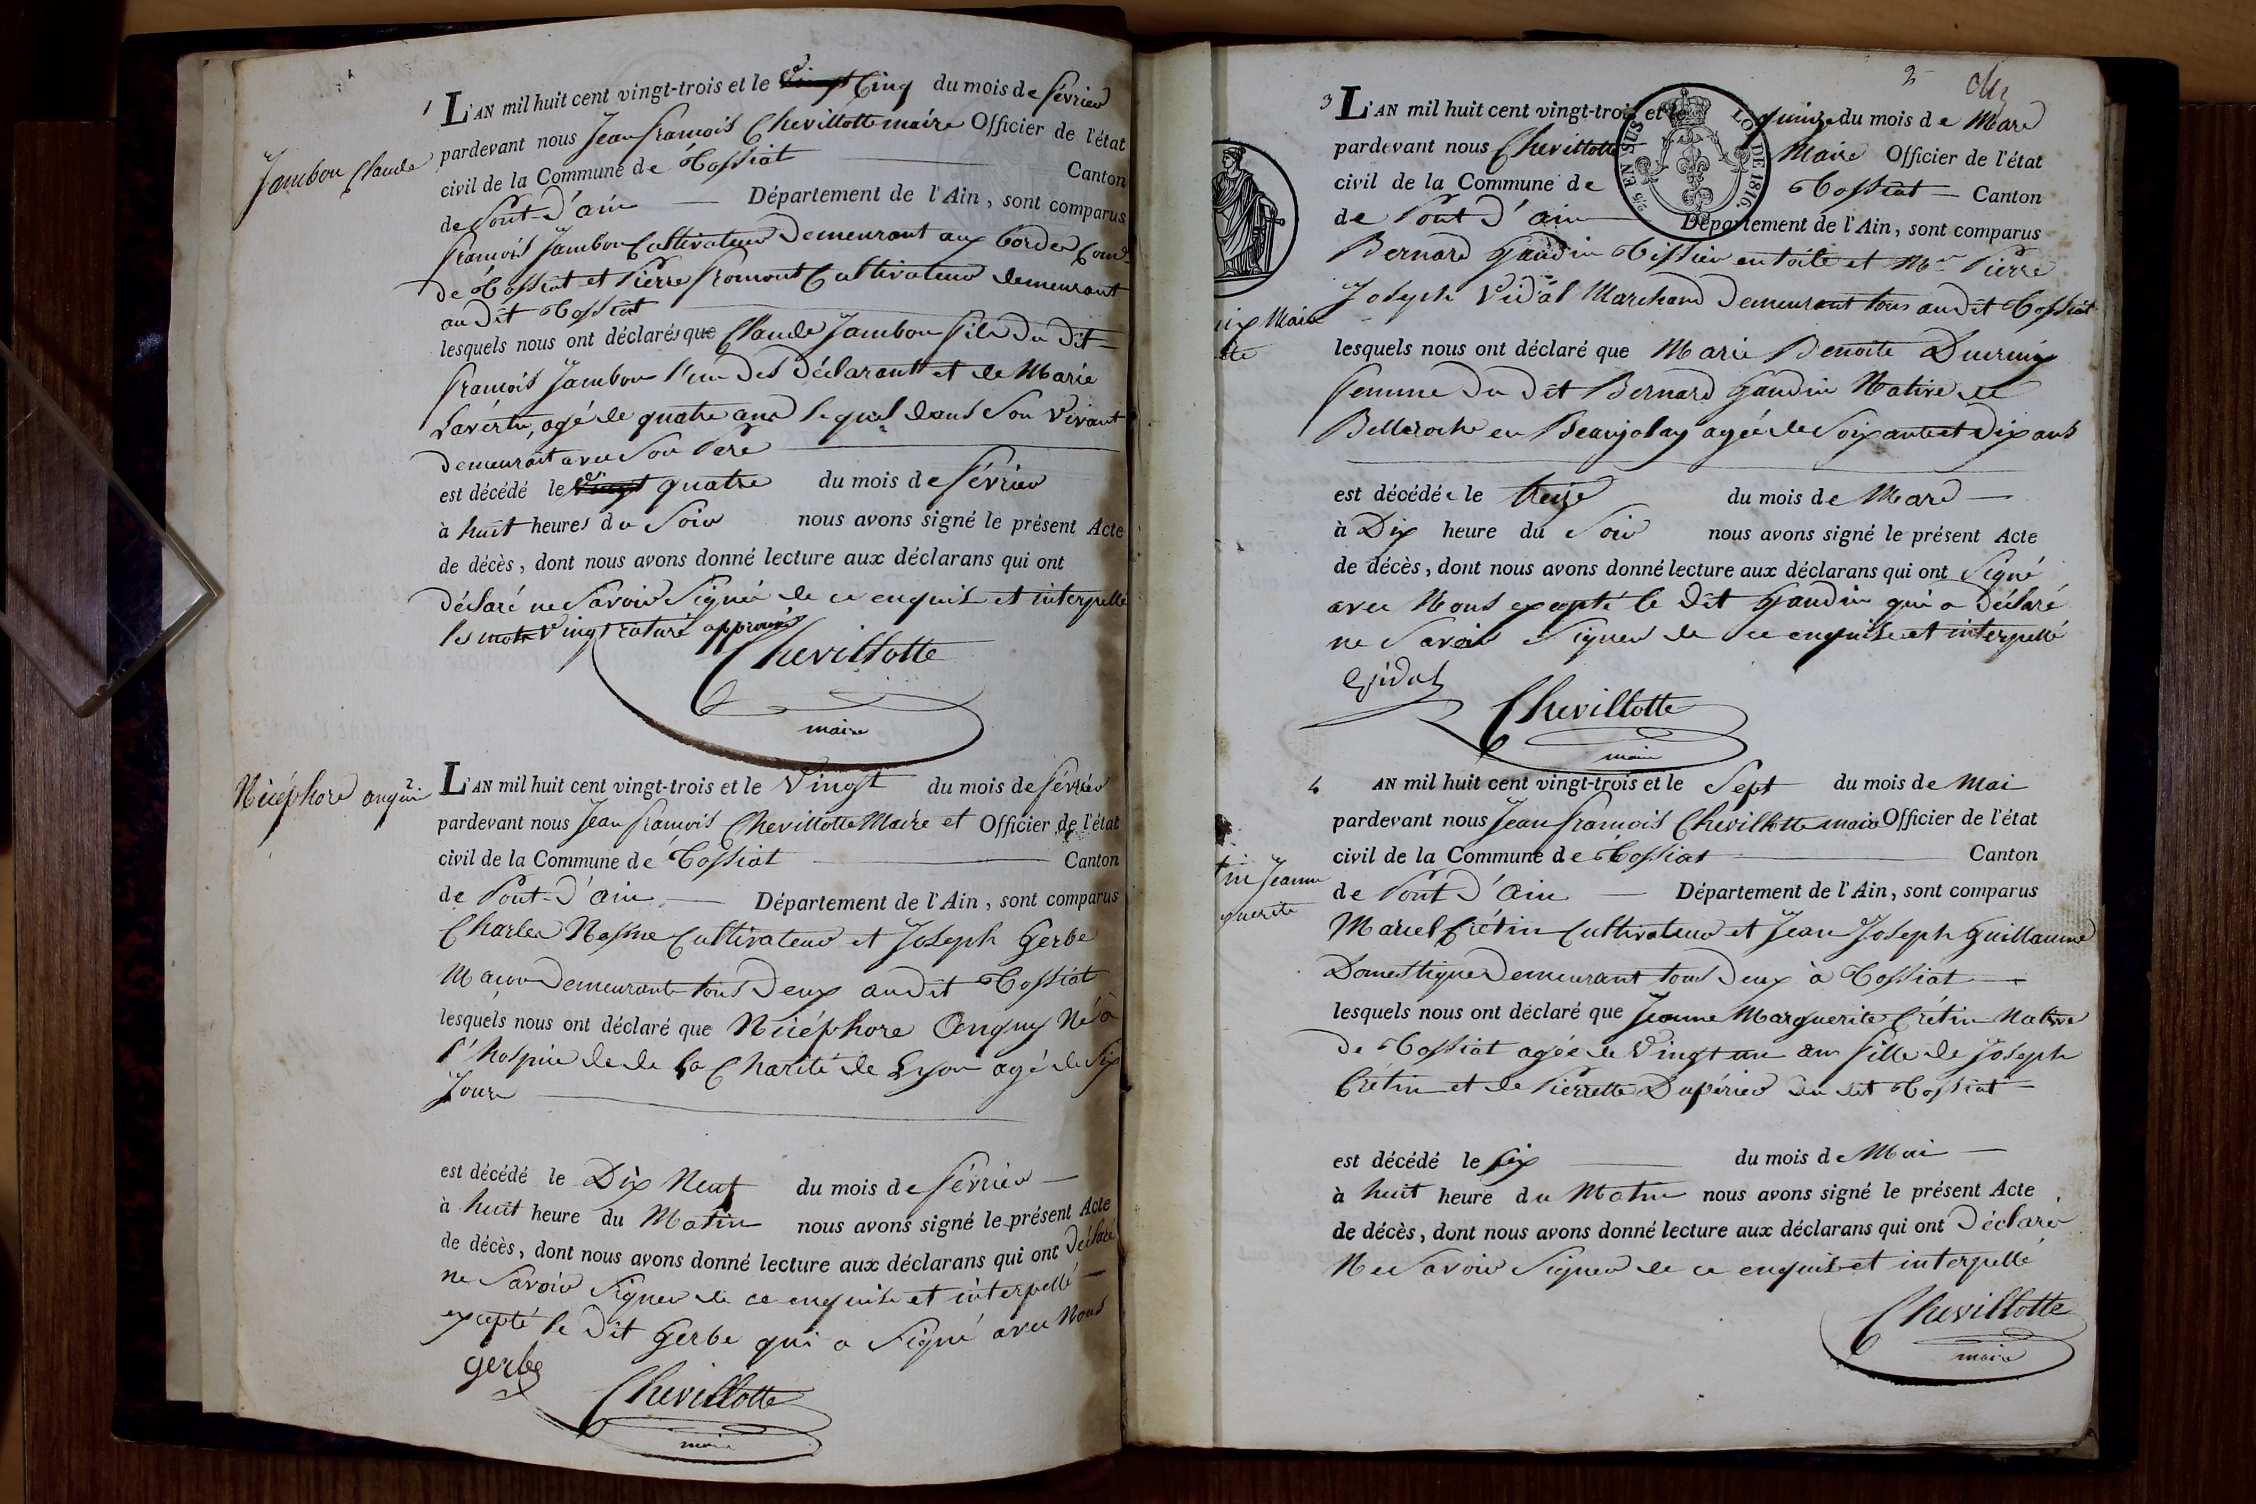 1
L'AN mil huit cent vingt-trois et le vingt Cinq du mois de février
Jambon Claude
pardevant nous Jean François Chevillotte maire Officier de l'état
civil de la Commune de Tossiat Canton
de Pont-d'ain Département de l'Ain, sont comparus
françois Jambon Cultivateur Demeurant aux bordes Com.
de Tossiat et Pierre fromont Cultivateur demeurant
au dit Tossiat
lesquels nous ont déclarés que Claude Jambon fils du dit
françois Jambon l'un des déclarants et de Marie
agé de quatre ans lequel dans Son Vivant
demeurait avec Son Pere
est décédé le vingt quatre du mois de février
à huit heures du Soir nous avons signé le présent Acte
de décès, dont nous avons donné lecture aux déclarans qui ont
déclaré ne Savoir Signer de ce enquis et interpellé
les mots Vingt raturé approuvé
Chevillotte
maire
Nicéphore anguin
2
L'AN mil huit cent vingt-trois et le Vingt du mois de février
pardevant nous Jean françois Chevillotte Maire et Officier de l'état
civil de la Commune de Tossiat Canton
de Pont-d'ain Département de l'Ain, sont comparus
Charles Cultivateur et Joseph Gerbe
Maçon Demeurants tous Deux au dit Tossiat
lesquels nous ont déclaré que Nicéphore Né à
l'hospice de de la Charité de Lyon agé de Six
Jours
est décédé le Dix Neuf du mois de février
à huit heure du Matin nous avons signé le présent Acte
de décès, dont nous avons donné lecture aux déclarans qui ont déclaré
ne Savoir Signer de ce enquis et interpellé
excepté le dit Gerbe qui a Signé avec Nous
gerbe
Chevillotte
maire
2
3
L'AN mil huit cent vingt-trois et le quinze du mois de Mars
pardevant nous Chevillotte Maire Officier de l'état
civil de la Commune de Tossiat Canton
de Pont d'ain Département de l'Ain, sont comparus
25 EN SUS
LOI DE 1816.
Bernard Gaudin Tissier en toile et Mr Pierre
Joseph Vidal Marchand Demeurant tous au dit Tossiat
lesquels nous ont déclaré que Marie Benoite
femme du dit Bernard Gaudin Native de
Belleroche en Beaujolay agée de Soixante et Dix ans
est décédée le treize du mois de Mars
à Dix heure du Soir nous avons signé le présent Acte
de décès, dont nous avons donné lecture aux déclarans qui ont Signé
avec Nous excepté le dit Gaudin qui a déclaré
ne Savoir Signer de ce enquis et interpellé
Vidal
Chevillotte
maire
4
AN mil huit cent vingt-trois et le Sept du mois de Mai
pardevant nous Jean françois Chevillotte maire Officier de l'état
civil de la Commune de Tossiat Canton
de Pont d'Ain Département de l'Ain, sont comparus
Marcel Crétin Cultivateur et Jean Joseph Guillaume
Domestique Demeurant tous Deux à Tossiat
lesquels nous ont déclaré que Jeanne Marguerite Crétin Native
de Tossiat agée de Vingt un ans fille de Joseph
Crétin et de Pierrette Dupérier du dit Tossiat
est décédé le Six du mois de Mai
à huit heure du Matin nous avons signé le présent Acte
de décès, dont nous avons donné lecture aux déclarans qui ont Déclaré
Ne Savoir Signer de ce enquis et interpellé
Chevillotte
maire